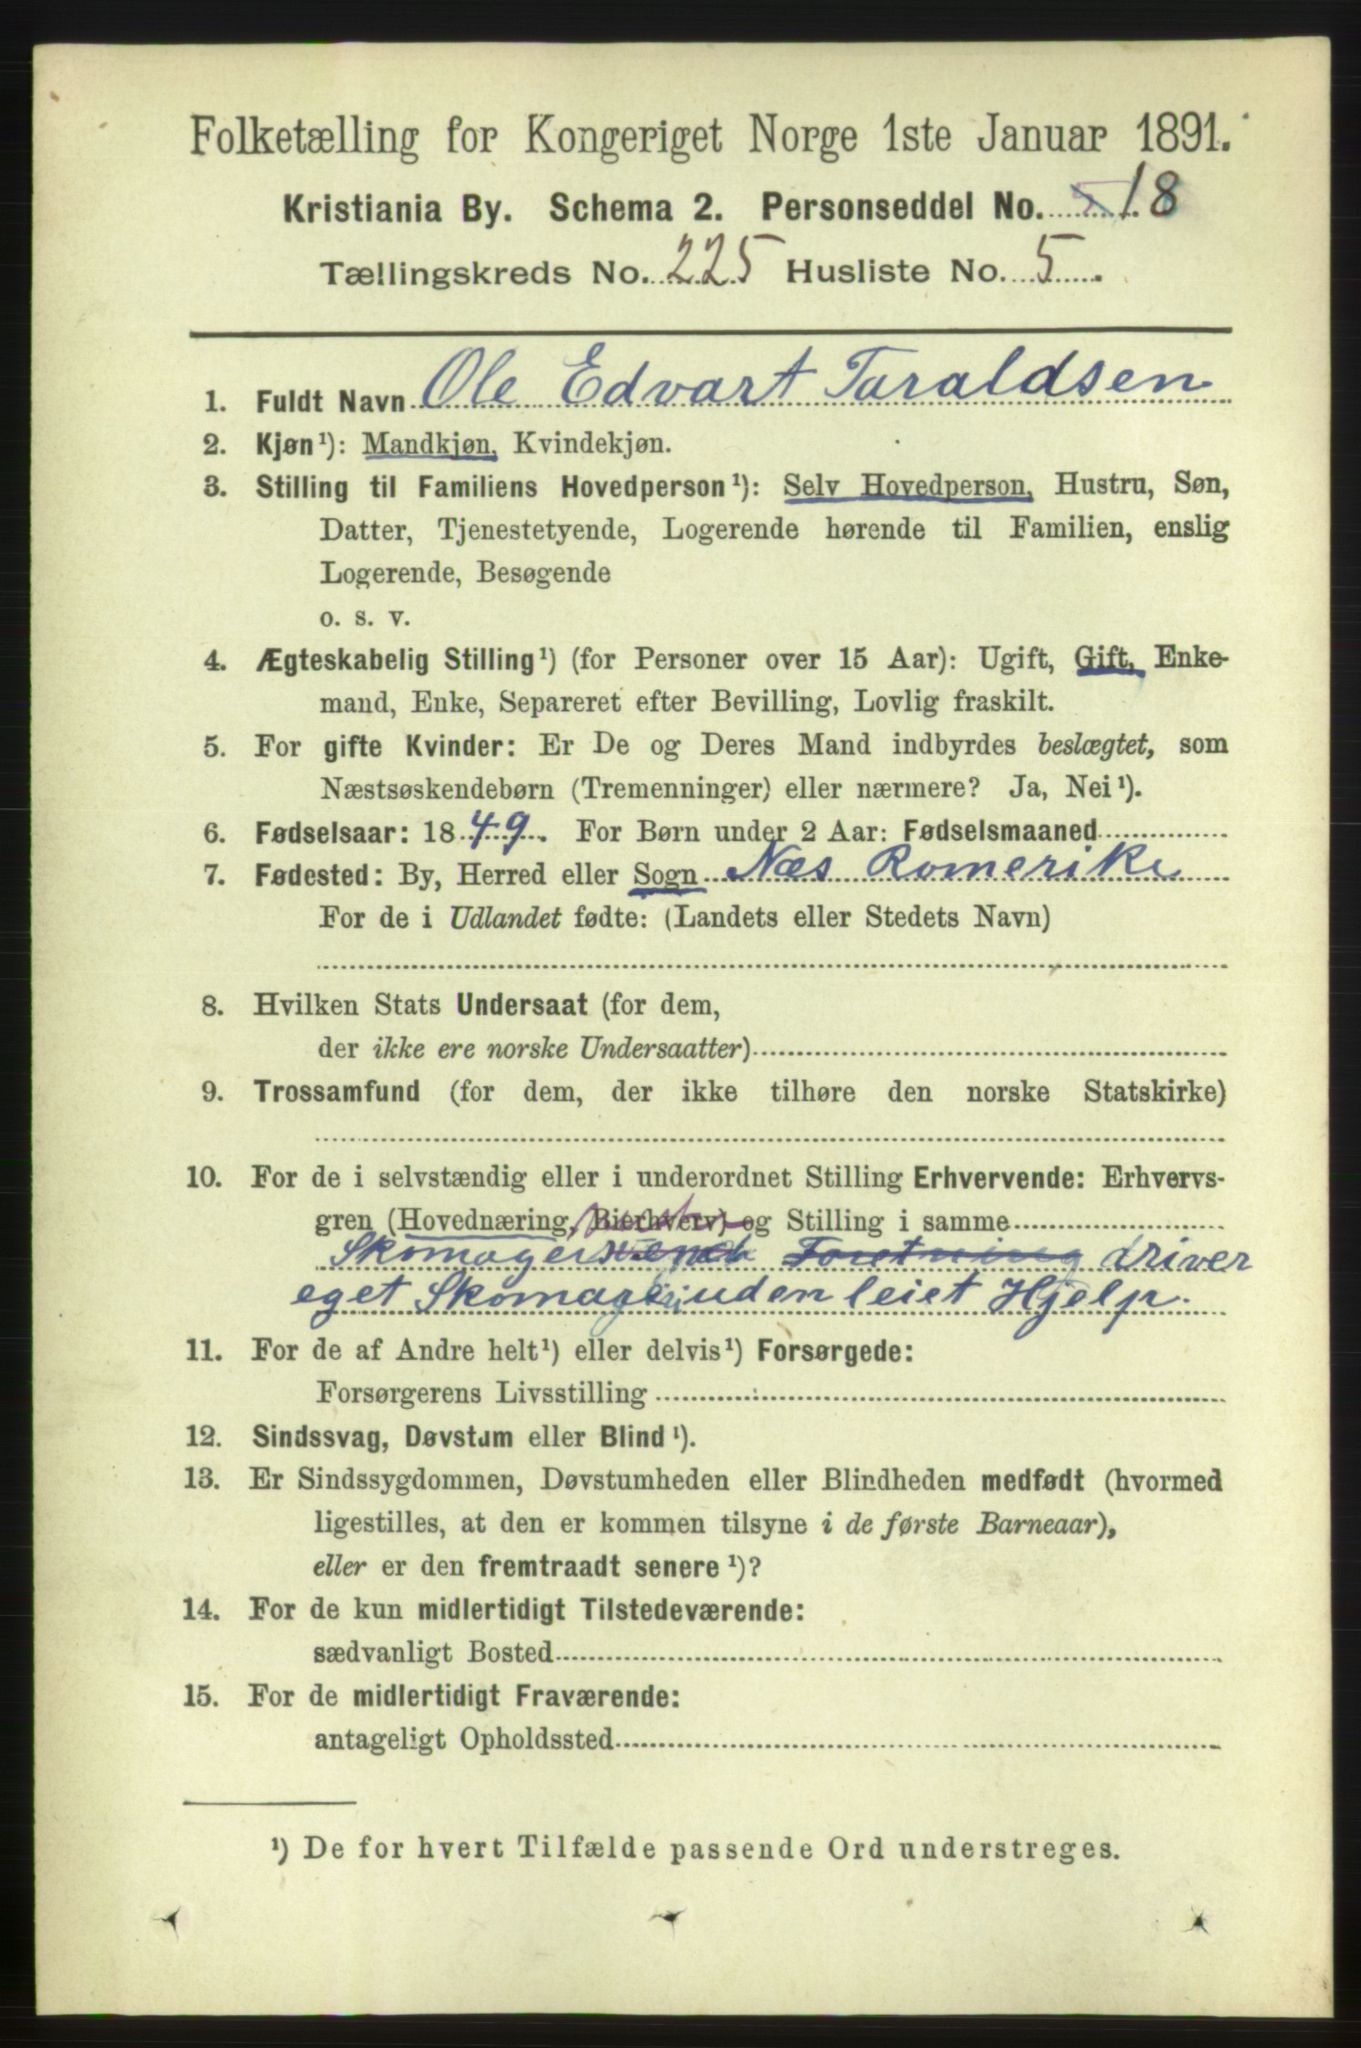 Folketælling for Kongeriget Norge 1ste Januar 1891.
Kristiania By. Schema 2. Personseddel No. 18
Tællingskreds No. 225 Husliste No. 5.
1. Fuldt Navn Ole Edvart Taraldsen
2. Kjøn¹): Mandkjøn, Kvindekjøn.
3. Stilling til Familiens Hovedperson¹): Selv Hovedperson, Hustru, Søn,
Datter, Tjenestetyende, Logerende hørende til Familien, enslig
Logerende, Besøgende
o. s. v.
4. Ægteskabelig Stilling¹) (for Personer over 15 Aar): Ugift, Gift, Enke-
mand, Enke, Separeret efter Bevilling, Lovlig fraskilt.
5. For gifte Kvinder: Er De og Deres Mand indbyrdes beslægtet, som
Næstsøskendebørn (Tremenninger) eller nærmere? Ja, Nei¹).
6. Fødselsaar: 1849. For Børn under 2 Aar: Fødselsmaaned
7. Fødested: By, Herred eller Sogn Næs Romerike
For de i Udlandet fødte: (Landets eller Stedets Navn)
8. Hvilken Stats Undersaat (for dem,
der ikke ere norske Undersaatter)
9. Trossamfund (for dem, der ikke tilhøre den norske Statskirke)
10. For de i selvstændig eller i underordnet Stilling Erhvervende: Erhvervs-
gren (Hovednæring, Bierhverv) og Stilling i samme
Skomager Foretning driver
eget Skomageri uden leiet Hjelp.
11. For de af Andre helt¹) eller delvis¹) Forsørgede:
Forsørgerens Livsstilling
12. Sindssvag, Døvstum eller Blind¹).
13. Er Sindssygdommen, Døvstumheden eller Blindheden medfødt (hvormed
ligestilles, at den er kommen tilsyne i de første Barneaar),
eller er den fremtraadt senere¹)?
14. For de kun midlertidigt Tilstedeværende:
sædvanligt Bosted
15. For de midlertidigt Fraværende:
antageligt Opholdssted
¹) De for hvert Tilfælde passende Ord understreges.